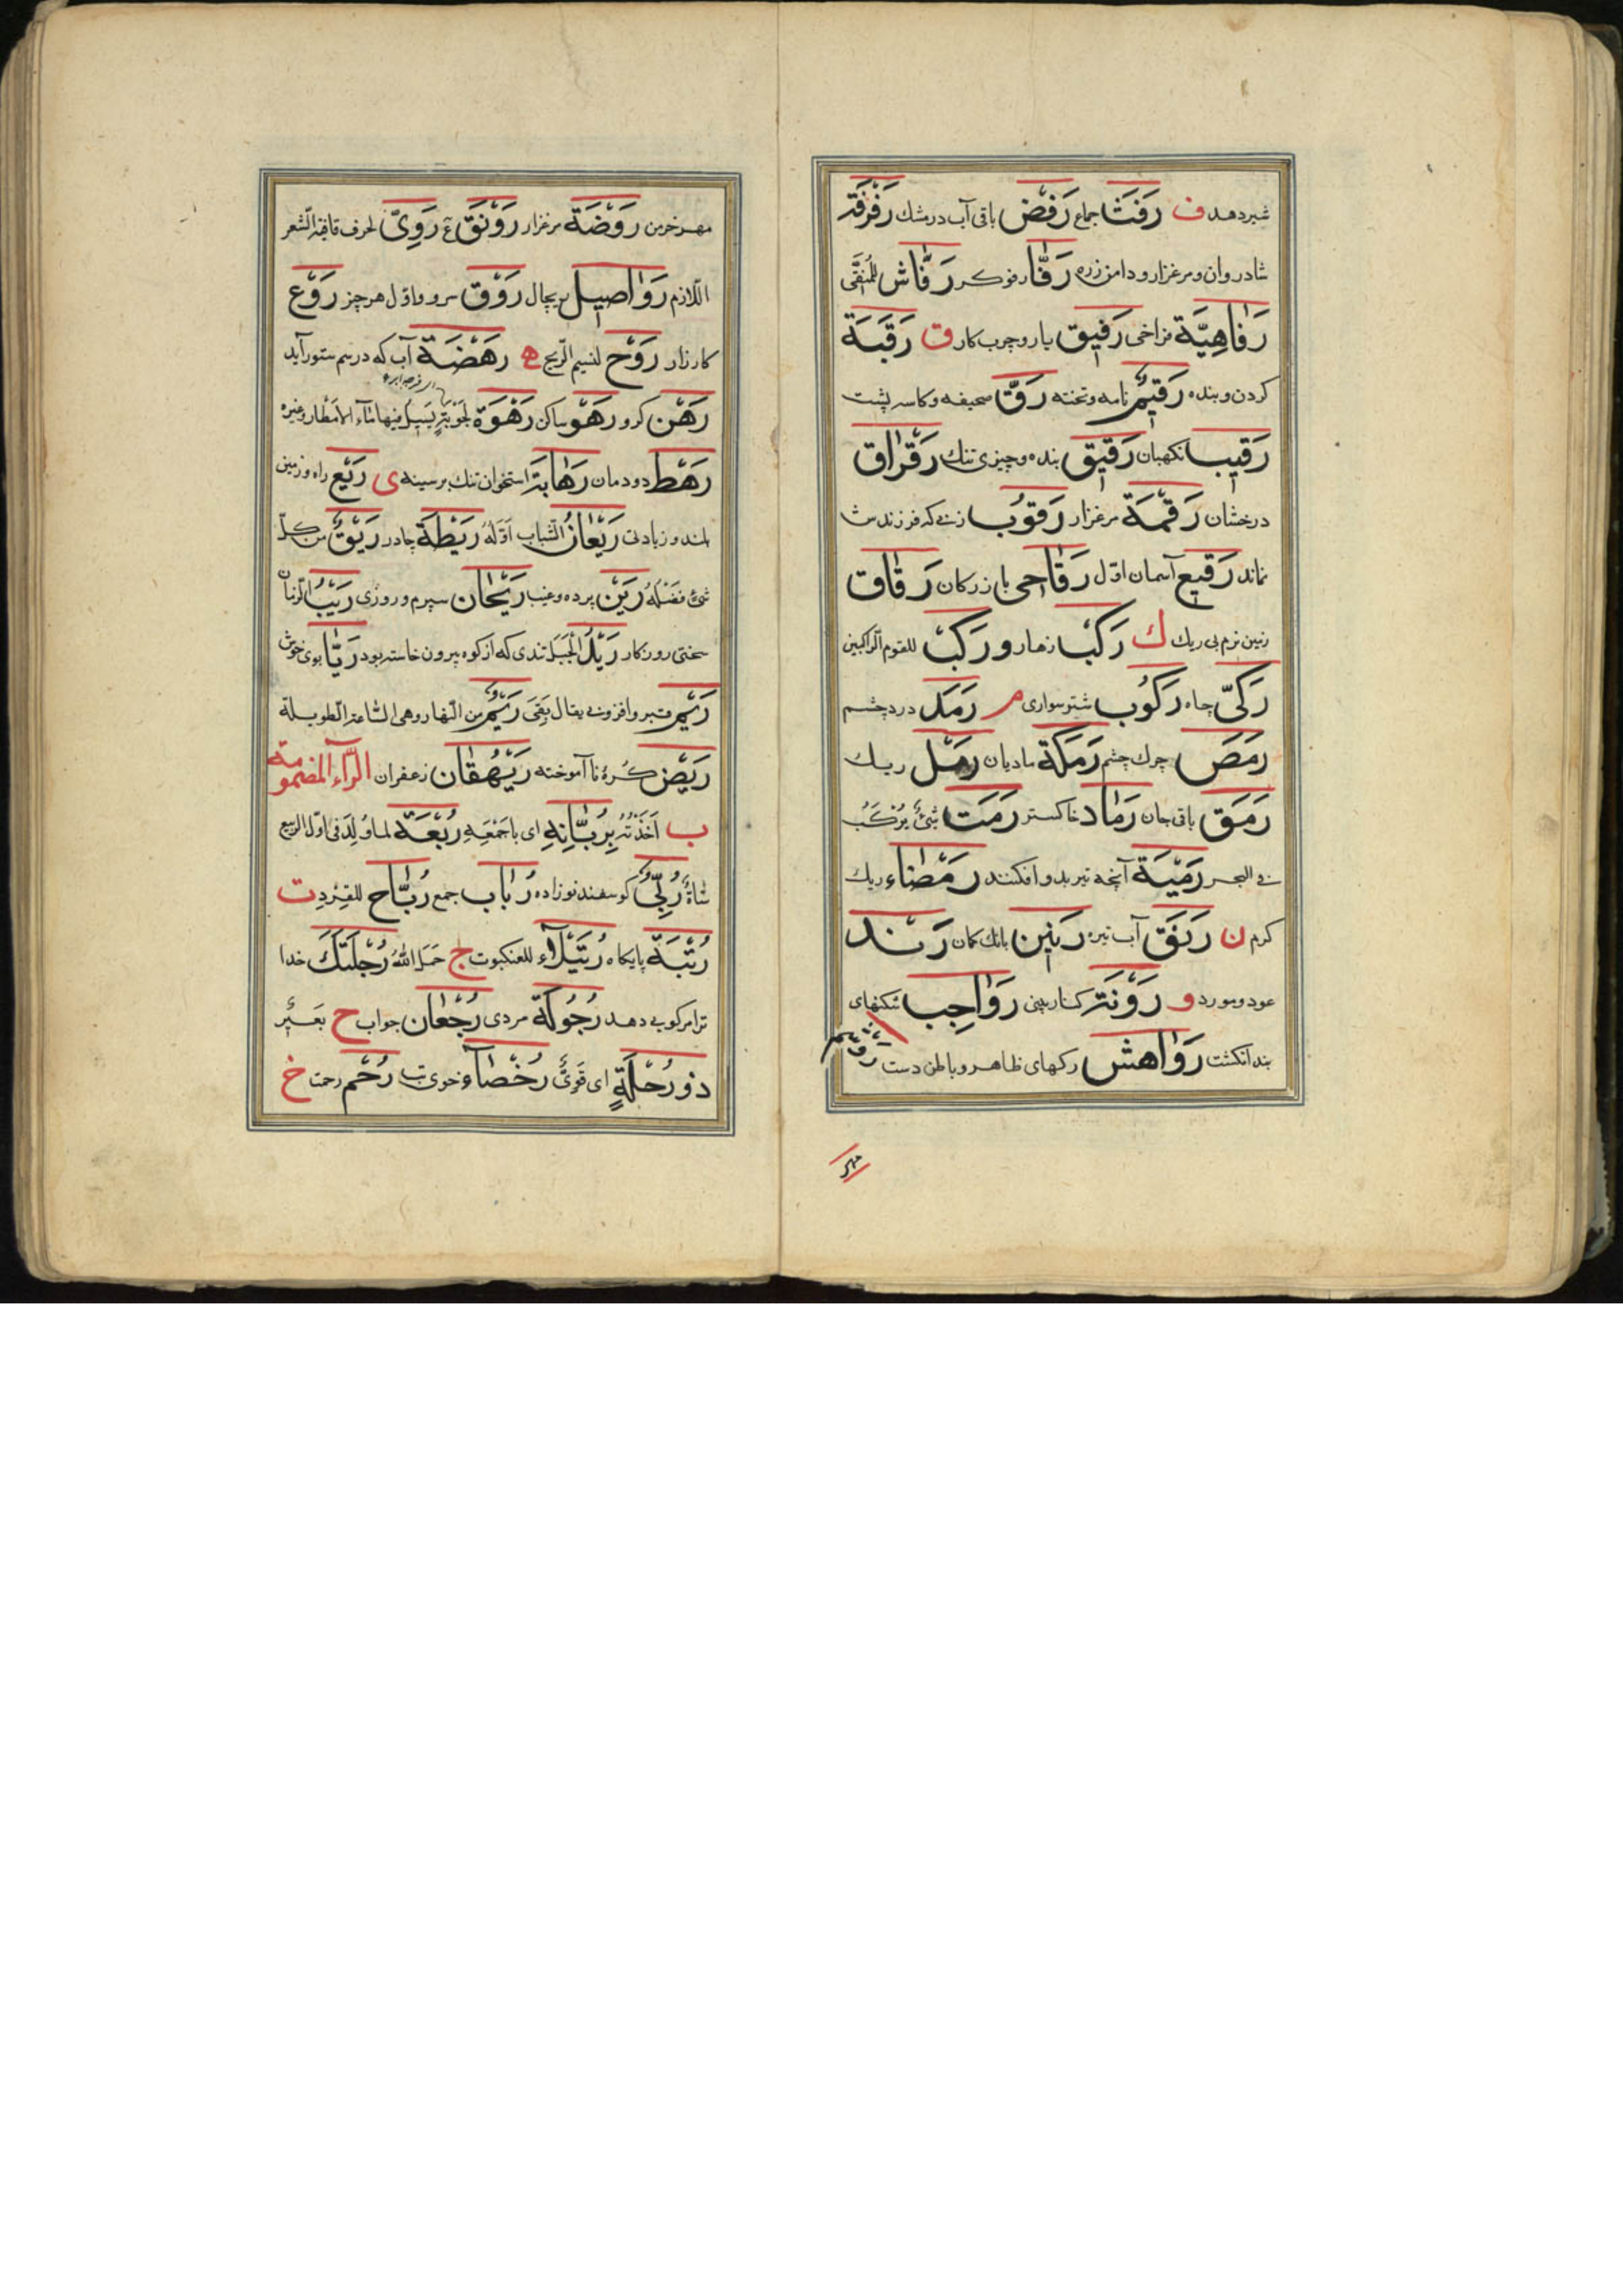 شیر دهد ف رَفَث جماع رَفَض باقی آب در مشک رَفْرَفَة
شادروان و مرغزار و دامن زره رَفَّا رفوکر رَفَّاش للمُنَقِّی
رَفَاهِيَّة فراخی رَفيق یار و چرب کار ق رَقَبَة
کردن و بنده رَقيم نامه و تخته رَقّ صحیفه و کاسه پشت
رَقيب نکهبان رَقيق بنده و چیزی تنک رَقْرَاق
درخشان رَقْمَة مرغزار رَقُوب زنی که فرزندش
نماند رَقيع آسمان اول رَقَاحی بازرکان رَقَاق
زمین نرم بی ریک ك رَكَب زهار و رَكْب للقوم الراکبین
رَكیّ چاه رَكُوب شتر سواری م رَمَد درد چشم
رَمَص چرک چشم رَمَكَة مادیان رَمْل ریک
رَمَق باقی جان رَمَاد خاکستر رَمَث شیءٌ یُرْکَبُ
فی البحر رَمِيَّة آنچه تیر بدو افکنند رَمْضَاء ریک
کرم ن رَنَق آب تیره رَنين بانک کمان رَنْد
عود و مورد و رَوْنَة کنار بینی رَوَاجِب شکنهای
بند انکشت رَوَاهش رکهای ظاهر و باطن دست
مهر
مهر خرمن رَوْضَة مرغزار رَوْنَق ع رَوِیّ لحرف قافیة الشعر
اللازم رَوَاصيل ریچال رَوْق سرو و اول هر چیز رَوْع
کارزار رَوْح لنسیم الریح ه رَهْصَة آب که در سم ستور آید
رَهْن کرو رَهْو ساکن رَهْوَة لجَوْبَةٍ یَسیلُ فیها ماء الامطار وغیره
رَهْط دودمان رَهَابَة استخوان تنک بر سینه ی رَيْع راه و زمین
بلند و زیادتی رَيْعَانُ الشباب اَوَّلُهُ رَيْطَة چادر رَيِّق من کلّ
شیءٍ فضلُهُ رَيْن پرده و عیب رَيْحَان سپرم و روزی رَيْبُ الزمان
سختی روزکار رَيْدُ الجَبَل تندی که از کوه بیرون خاسته بود رَيَّا بوی خوش
رَيْم قبر و افزونی یقال بَقِیَ رَيْمٌ من النهار وهی الساعة الطویلة
رَيِّض کرهٔ ناآموخته رَيْهُقَان زعفران الرّاء المضمومة
ب اَخَذْتُهُ بِرُبَّانِهِ ای باجمَعِهِ رُبَعَة لما وُلِدَ فی اول الربیع
شاةٌ رُبَّی کوسفند نوزاده رُبَاب جمع رُبَّاح للقِرْد ت
رُتْبَة پایکاه رُتَيْلَاء للعنکبوت ج حَمَلَ اللهُ رُجْلَتَكَ خدا
ترا مرکوبی دهد رُجُولَة مردی رُجْعَان جواب ح بَعیرٌ
ذو رُحْلَةٍ ای قَوِیّ رُحَضَاء خوی تب رُحْم رحمت خ